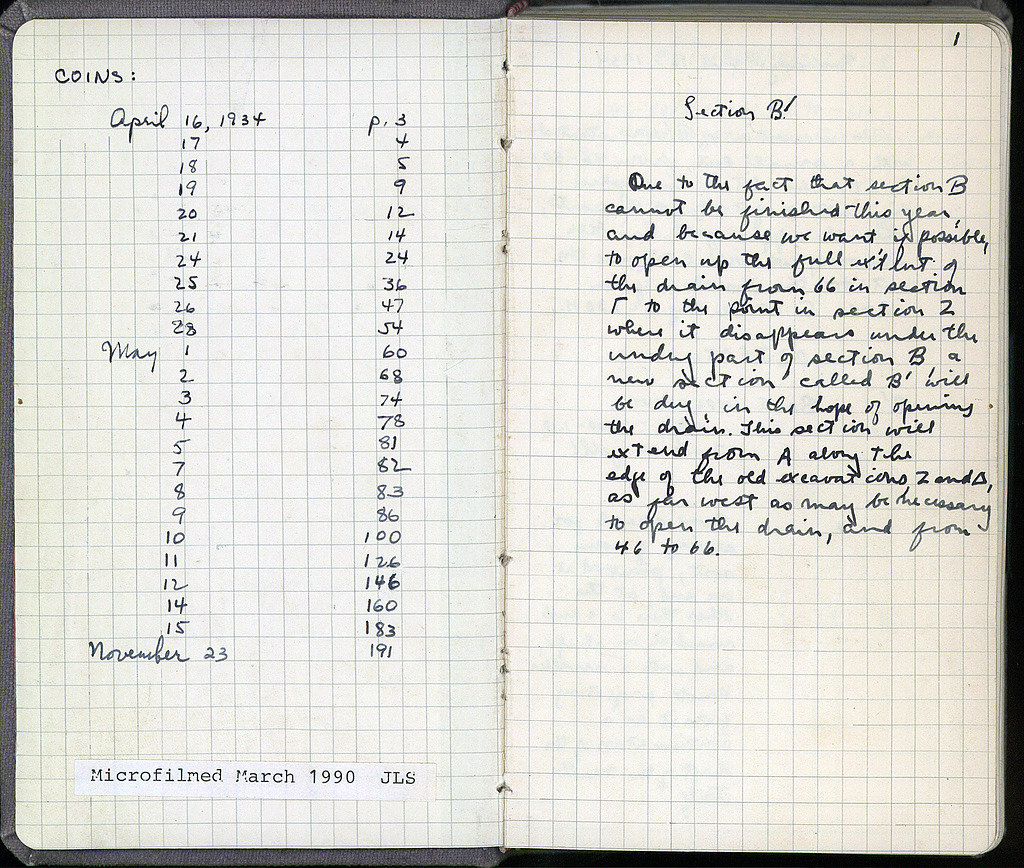 COINS:
April 16, 1934 p. 3
17 4
18 5
19 9
20 12
21 14
24 24
25 36
26 47
28 54
May 1 60
2 68
3 74
4 78
5 81
7 82
8 83
9 86
10 100
11 126
12 146
14 160
15 183
November 23 191
Microfilmed March 1990 JLS
1
Section B'
Due to the fact that section B
cannot be finished this year,
and because we want if possible,
to open up the full of
the drain from 66 in section
Γ to the point in section Z
where it disappears under the
part of section B, a
new section called B' will
be dug in the hope of opening
the drain. This section will
extend from A along the
edge of the old excavations Z and Δ,
as far west as may be necessary
to open the drain, and from
46 to 66.